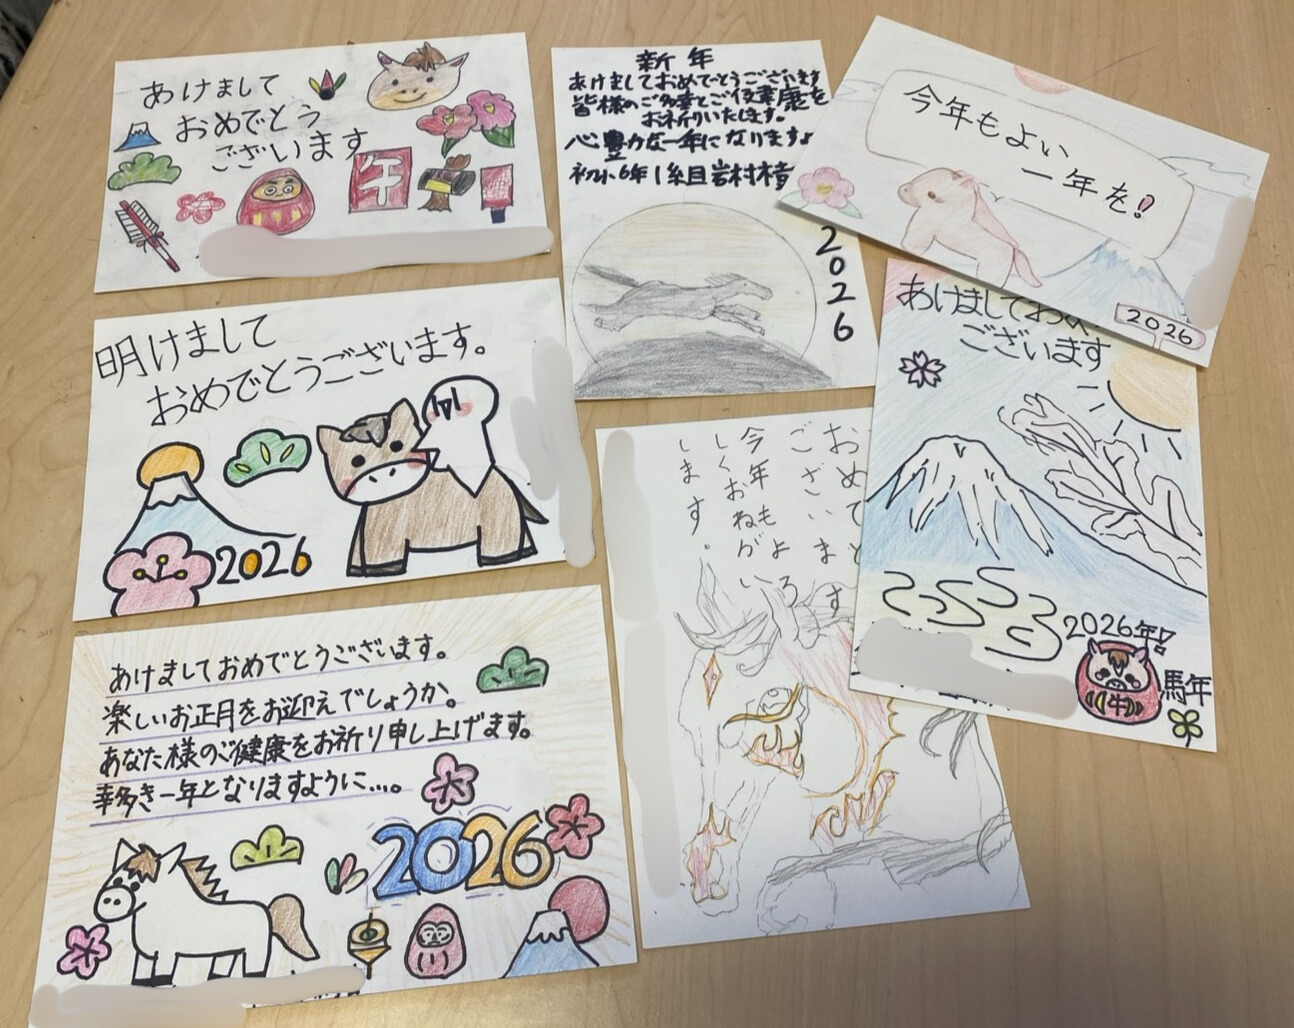 あけまして
おめでとう
ございます
午
新年
あけましておめでとうございます
皆様のご多幸とご健康を
お祈りいたします。
心豊かな一年になりますよ
初小6年1組目岩村椿
2026
今年もよい
一年を!
2026
明けまして
おめでとうございます。
2026
おめでと
ございます
今年もよろ
しくおねがい
します.
あけましておめ
ございます
2026年!
馬年
あけましておめでとうございます。
楽しいお正月をお迎えでしょうか。
あなた様のご健康をお祈り申し上げます。
幸多き一年となりますように…。
2026